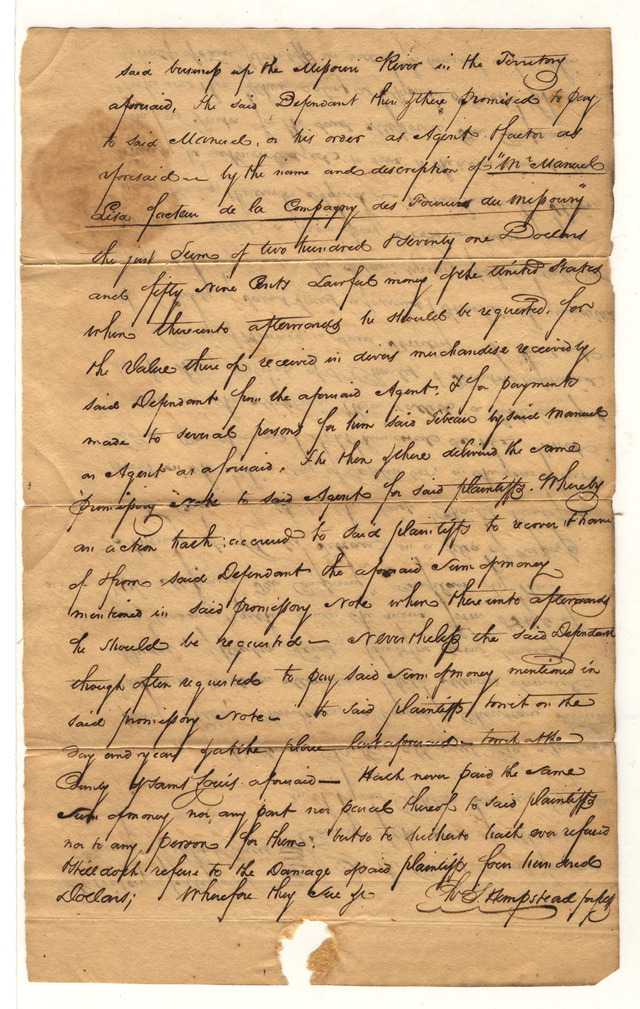 said business up the Missouri River in the Territory
aforesaid, the said Defendant then & there promised to pay
to said Manuel, or his order as Agent & factor as
aforesaid — by the name and description of "Mr. Manuel
Lisa facteur de la Compagny des Fourures du Missoury"
the just Sum of two hundred & seventy one Dollars
and fifty Nine Cents Lawful money of the United States
when thereunto afterwards he should be requested, for
the Value thereof received in divers merchandise received by
said Defendant from the aforesaid Agent, & for payments
made to several persons for him said Tebeau by said Manuel
as Agent as aforesaid, & he then & there delivered the same
promissory Note to said Agent for said plaintiffs. Whereby
an action hath accrued to said plaintiffs to recover & have
of & from said Defendant the aforesaid Sum of money
mentioned in said promissory Note when thereunto afterwards
he should be requested — Nevertheless the said Defendant
though often requested to pay said Sum of money mentioned in
said promissory Note — to said plaintiffs towit on the
day and year & at the place last aforesaid — towit at the
County of Saint Louis aforesaid — Hath never paid the same
Sum of money nor any part nor parcel thereof to said plaintiffs
nor to any person for them, but so to hitherto hath ever refused
& still doth refuse to the Damage of said plaintiffs four hundred
Dollars; Wherefore they Sue &c
S. Hempstead for plfs